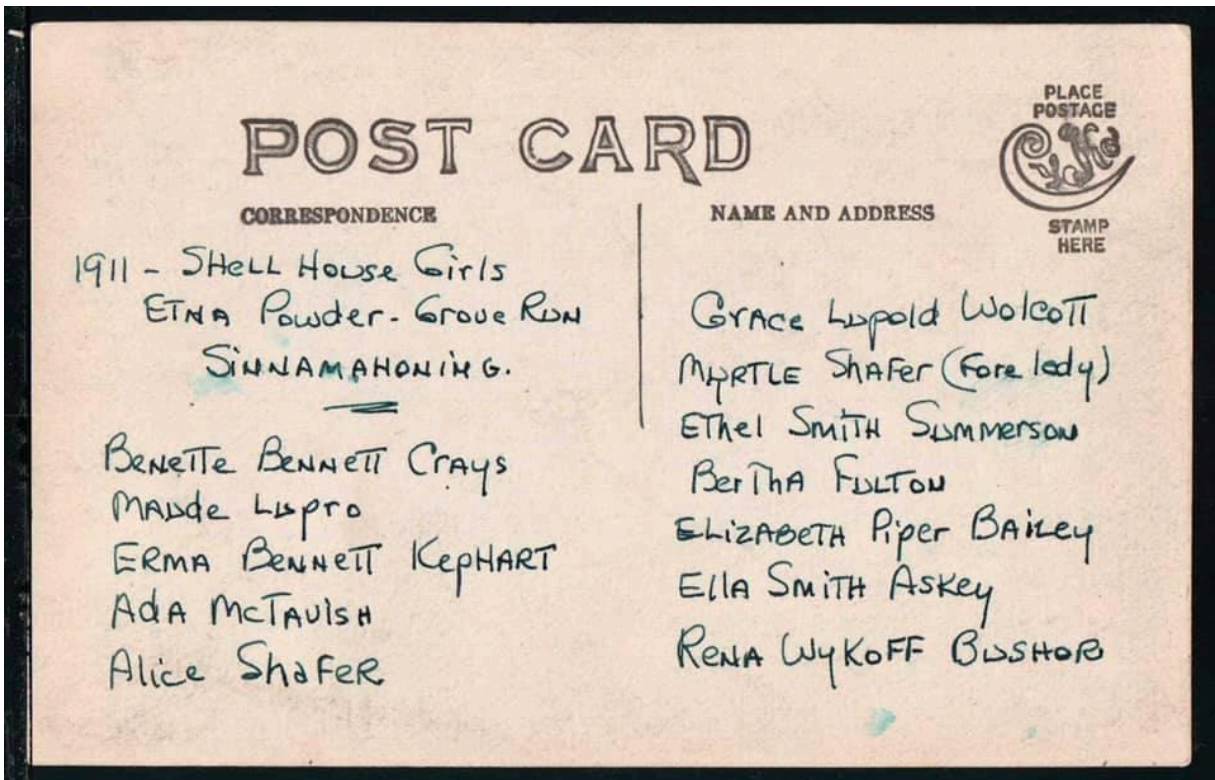 POST CARD
CORRESPONDENCE
1911 - Shell House Girls
Etna Powder - Grove Run
Sinnamahoning.
Benette Bennett Crays
Maude Lupro
Erma Bennett Kephart
Ada McTavish
Alice Shafer
NAME AND ADDRESS
PLACE
POSTAGE
STAMP
HERE
Grace Lupold Wolcott
Myrtle Shafer (Fore lady)
Ethel Smith Summerson
Bertha Fulton
Elizabeth Piper Bailey
Ella Smith Askey
Rena Wykoff Bushor